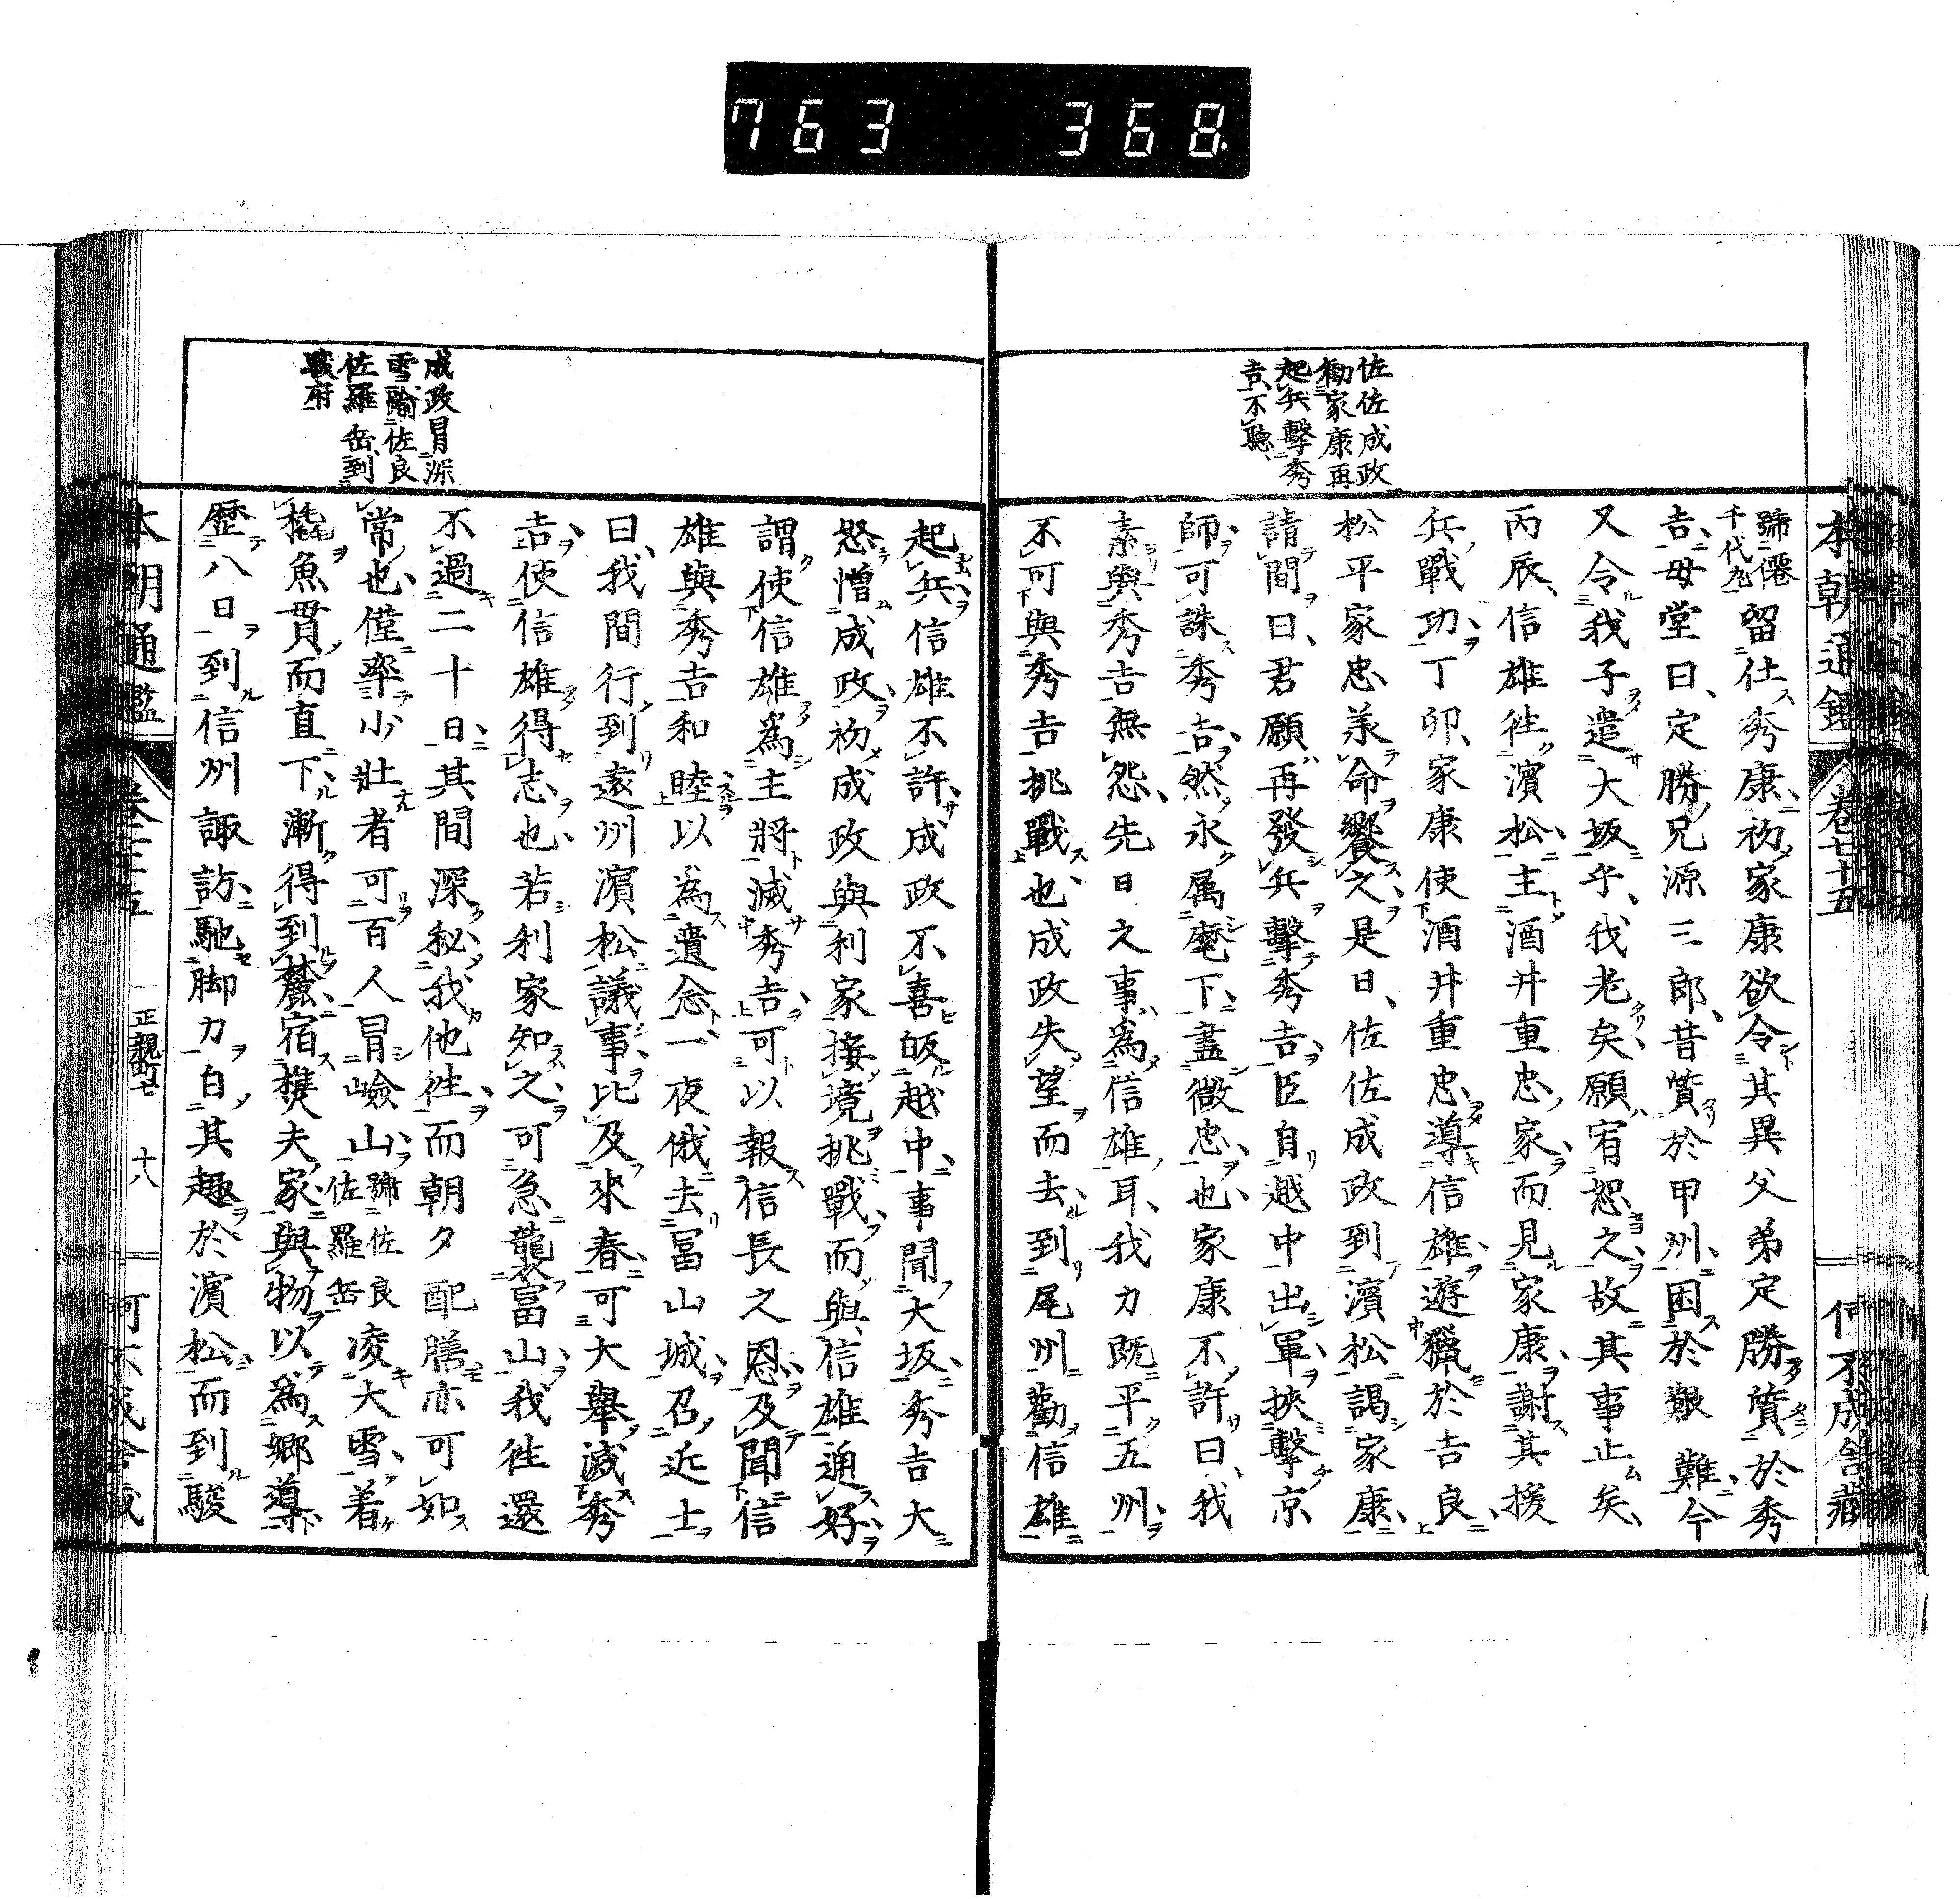 763 368
本朝通鑑 卷七十五 何不成舍藏
佐佐成政
勸家康再
起兵擊秀
吉、不聽
號僊千代丸 留仕秀康、初家康欲令其異父弟定勝質於秀
吉、母堂曰、定勝兄源三郎、昔質於甲州、困於艱難、今
又令我子遣大坂乎、我老矣、願宥恕之、故其事止矣、
丙辰、信雄徃濱松、主酒井重忠家、而見家康、謝其援
兵戰功、丁卯、家康使酒井重忠導信雄、遊獵於吉良、
松平家忠承命饗之、是日、佐佐成政到濱松謁家康、
請間曰、君願再發兵擊秀吉、臣自越中出軍、挾擊京
師、可誅秀吉、然永属麾下、盡微忠也、家康不許曰、我
素與秀吉無怨、先日之事、爲信雄耳、我力既平五州、
不可與秀吉挑戰也、成政失望而去、到尾州勸信雄
起兵、信雄不許、成政不喜皈越中、事聞大坂、秀吉大
怒憎成政、初成政與利家接境挑戰、而與信雄通好、
謂使信雄爲主將滅秀吉、可以報信長之恩、及聞信
雄與秀吉和睦、以爲遺念、一夜俄去冨山城、召近士
曰、我間行到遠州濱松議事、比及來春、可大舉滅秀
吉、使信雄得志也、若利家知之、可急襲冨山、我徃還
不過二十日、其間深秘我他徃、而朝夕配膳亦可如
常也、僅率少壯者可百人冒嶮山、號佐良佐羅岳 凌大雪、着
橇魚貫而直下、漸得到麓、宿樵夫家、與物以爲郷導、
歴八日到信州諏訪、馳脚力白其趣於濱松、而到駿
成政冒深
雪踰佐良
佐羅岳到
駿府
本朝通鑑 卷七十五 正親町七 十八 何不成舍藏